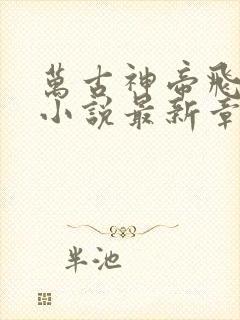 萬古神帝飛
小說最新章
半池